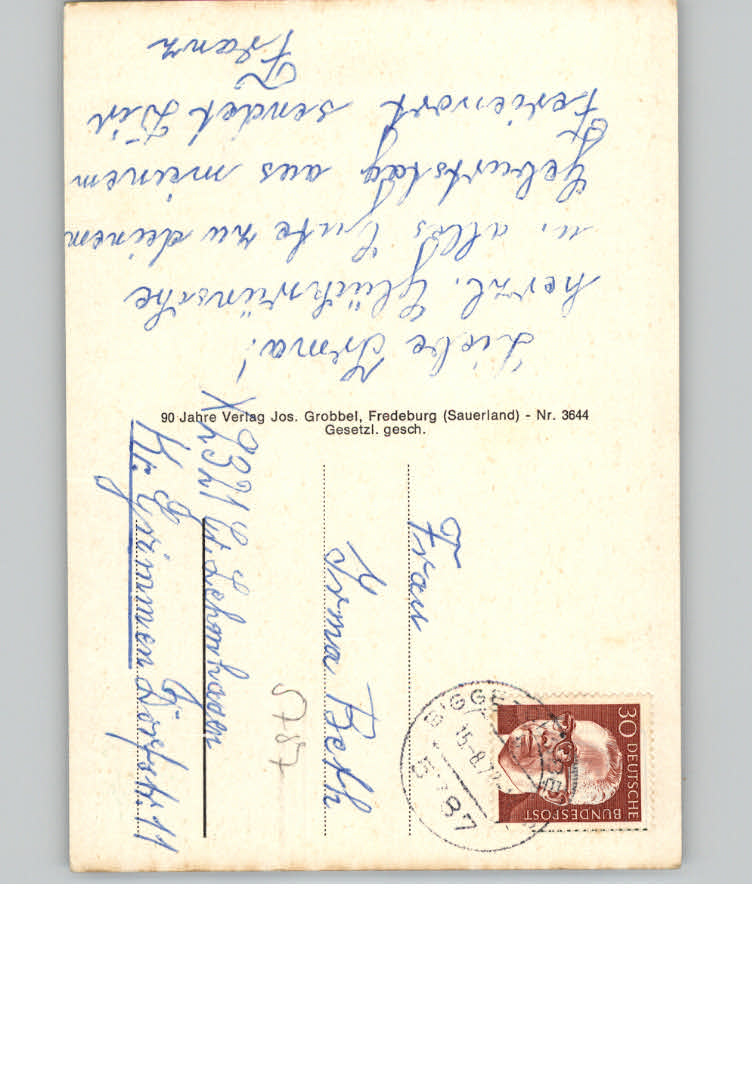 Liebe Irma!
herzl. Glückwünsche
u. alles Gute zu deinem
Geburtstag aus meinem
Ferienort sendet Dir
Franz
90 Jahre Verlag Jos. Grobbel, Fredeburg (Sauerland) - Nr. 3644
Gesetzl. gesch.
Frau
Irma Beth
X 9321
Kr. Grimmen
Dorfstr. 11
5787
30 DEUTSCHE
BUNDESPOST
BIGGE
15.-8.72
5787